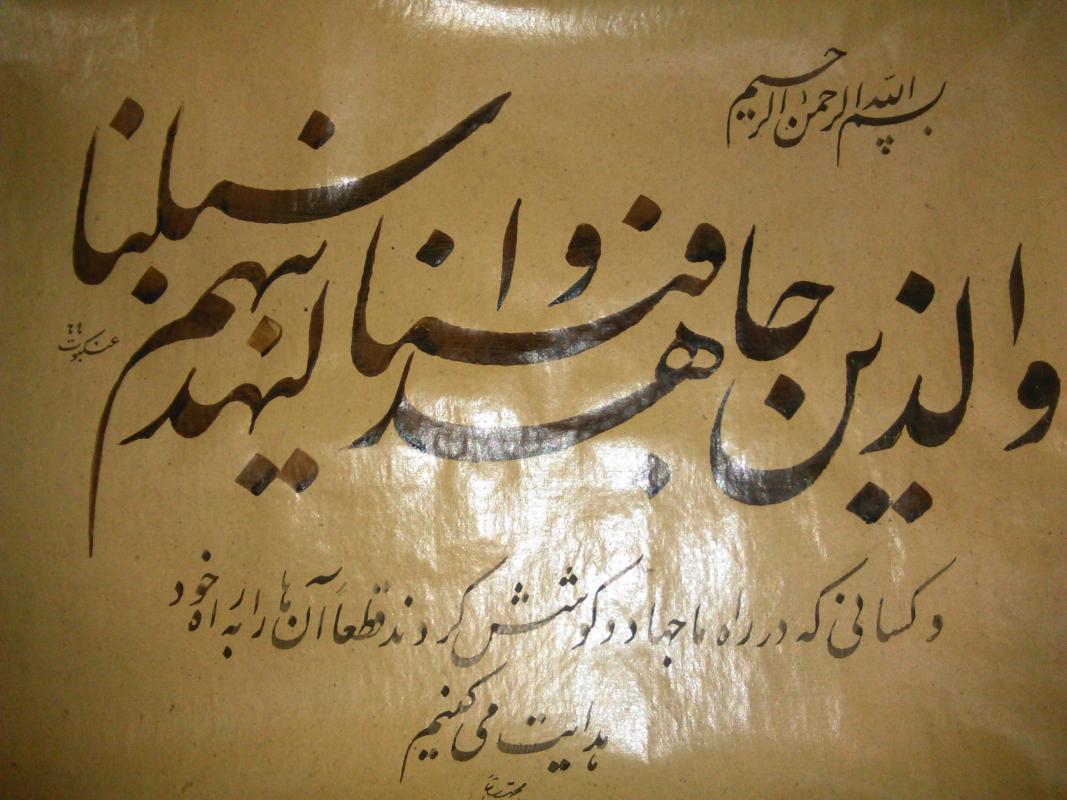 بسم الله الرحمن الرحیم
والذین جاهدوا فینا لنهدینهم سبلنا
عنکبوت
و کسانی که در راه ما جهاد و کوشش کردند قطعاً آن ها را به راه خود
هدایت می کنیم